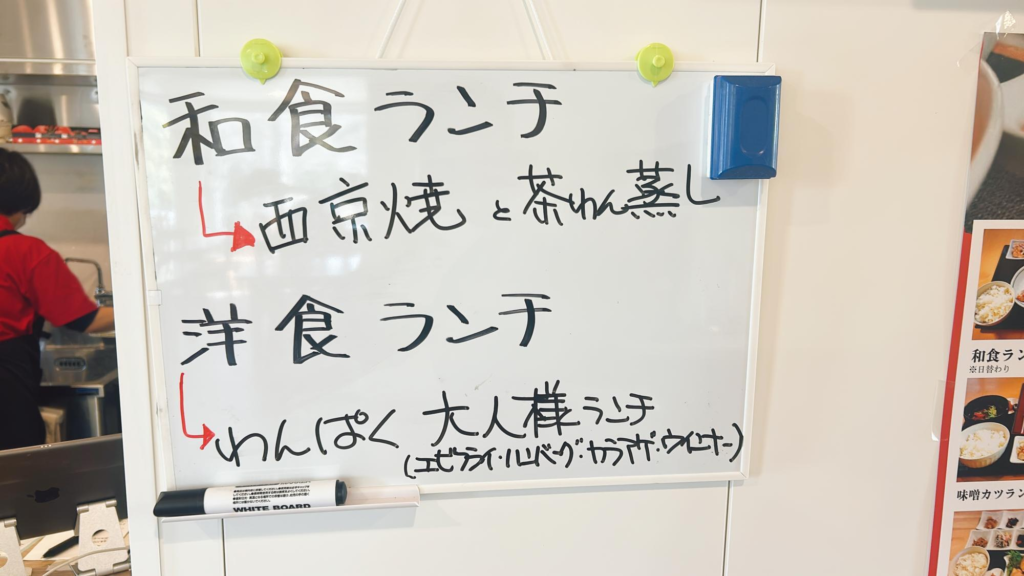 和食ランチ
西京焼と茶わん蒸し
洋食ランチ
わんぱく大人様ランチ
(エビフライ・ハンバーグ・カラアゲ・ウインナー)
WHITE BOARD
和食ラン
※日替わり
味噌カツラン